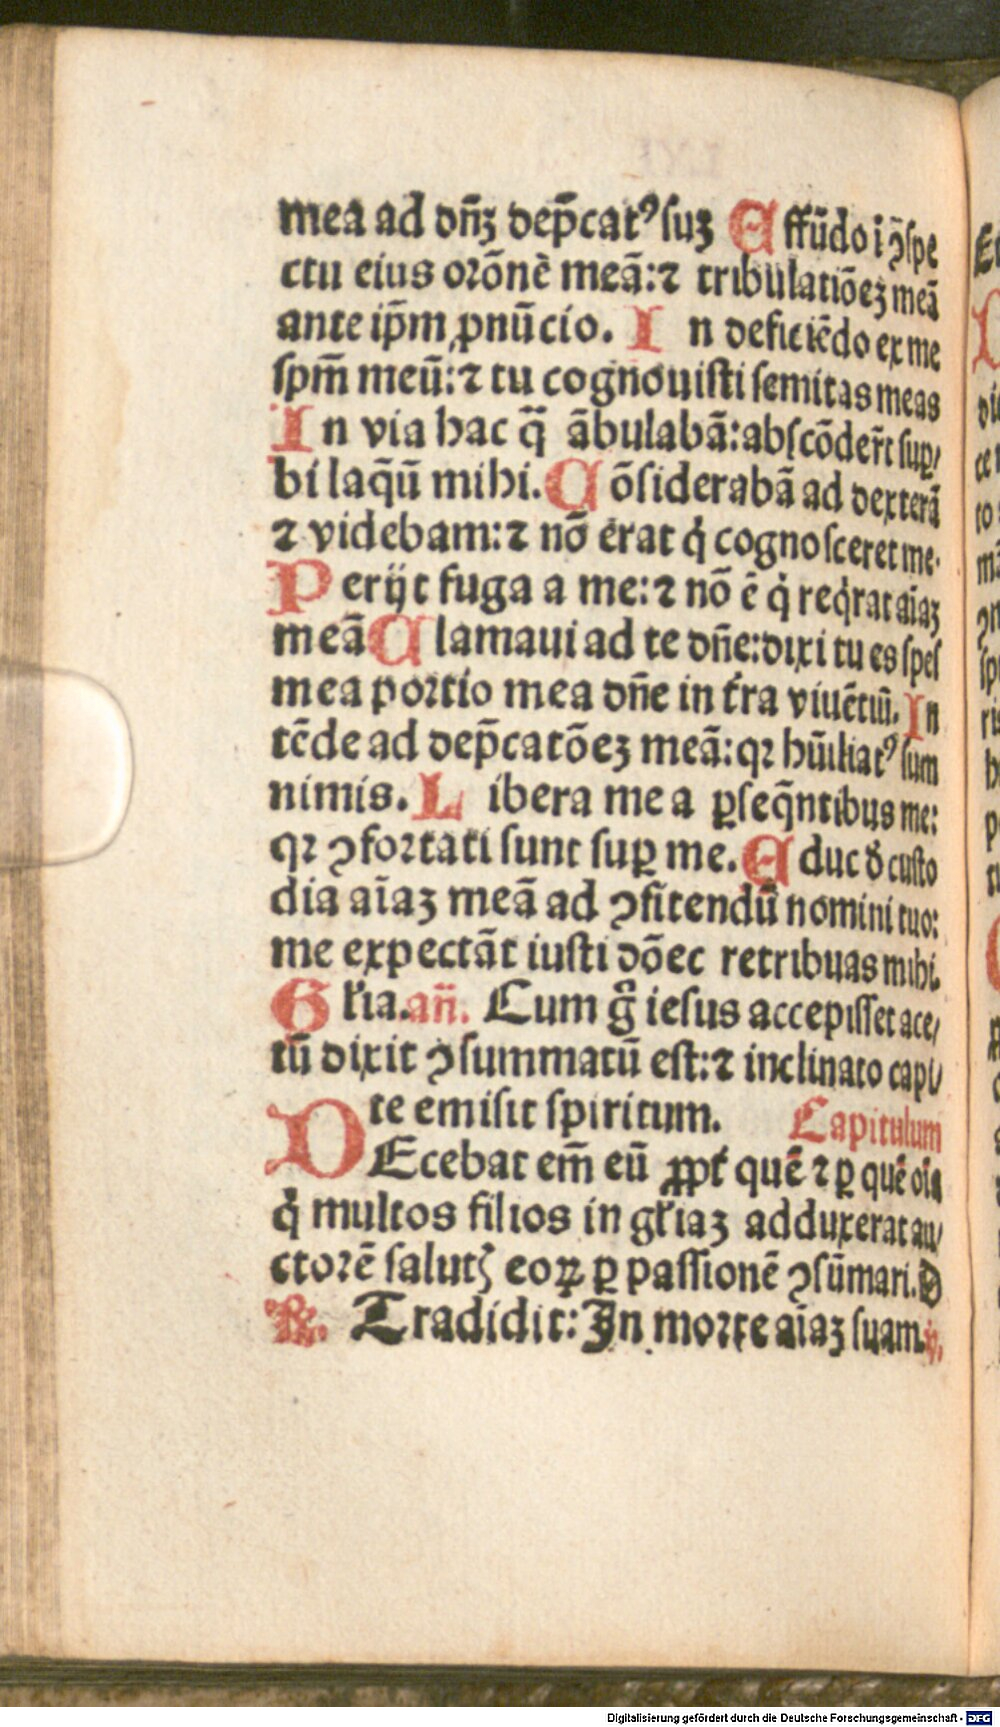 mea ad dn̄ꝫ dep̄catꝰ suꝫ Effūdo i ꝯ̄spe
ctu eius orōnē meā: ⁊ tribulatiōeꝫ meā
ante ip̄m ꝓnūcio. In deficiēdo ex me
spm̄ meū: ⁊ tu cognouisti semitas meas
In via hac q̄ ābulabā: abscōder̄t suꝑ/
bi laq̄ū mihi. Cōsiderabā ad dexterā
⁊ videbam: ⁊ nō erat q̇ cognosceret me.
Perijt fuga a me: ⁊ nō ē q̇ req̇rat aīaꝫ
meā Clamaui ad te dn̄e: dixi tu es spes
mea portio mea dn̄e in t̄ra viuētiū. In
tēde ad dep̄catōeꝫ meā: qꝛ hūiliatꝰ sum
nimis. Libera me a ꝑseq̄ntibus me:
qꝛ ꝯfortati sunt suꝑ me. Educ d̄ custo
dia aīaꝫ meā ad ꝯfitendū nomini tuo:
me expectāt iusti dōec retribuas mihi.
Gl'ia. an̄. Cum g̊ iesus accepisset ace/
tū dixit ꝯsummatū est: ⁊ inclinato capi/
te emisit spiritum. Capitulum
DEcebat em̄ eū ꝓpt' quē ⁊ ꝑ quē oīa
q̇ multos filios in gl'iaꝫ adduxerat au/
ctorē salutꝭ eoꝝ ꝑ passionē ꝯsūmari. D
℟. Tradidit: In morte aīaꝫ suam. ℣.
Digitalisierung gefördert durch die Deutsche Forschungsgemeinschaft - DFG